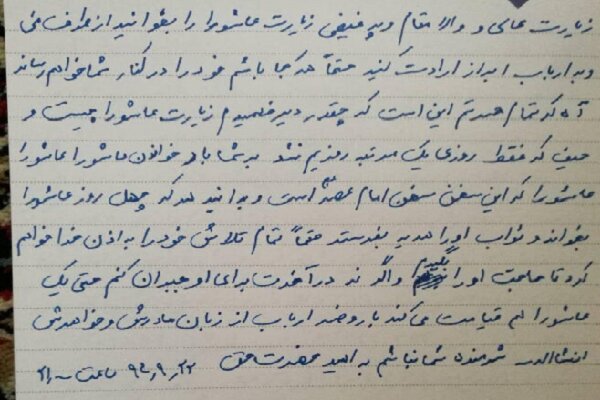 زیارت عالی و والا مقام و پر فیض زیارت عاشورا را بخوانید از طرف من
و به ارباب ابراز ارادت کنید حتماً هر کجا باشم خود را در کنار شما خواهم رساند
آه که تمام حسرتم این است که چقدر دیر فهمیدم زیارت عاشورا چیست و
حیف که فقط روزی یک مرتبه رزیم نشد بر شما باد خواندن عاشورا عاشورا
عاشورا که این سخن سخن امام عصر است و بدانید هر که چهل روز عاشورا
بخواند و ثواب او را هدیه بفرستد حتماً تمام تلاش خود را به اذن خدا خواهم
کرد تا حاجت او را بگیرم و اگر نه در آخرت برای او جبران کنم حتی یک
عاشورا هم قیامت می کند با روضه ارباب از زبان مادرش و خواهرش
انشاالله شرمنده شما نباشم به امید حضرت حق ساعت